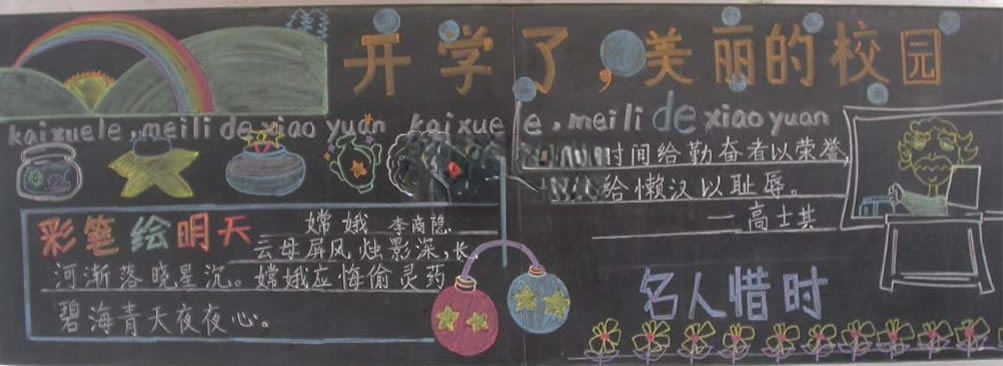 开学了,美丽的校园
kaixuele,meili de xiao yuan kaixuele,meili de xiao yuan
彩笔绘明天
嫦娥 李商隐
云母屏风烛影深,长
河渐落晓星沉。嫦娥应悔偷灵药
碧海青天夜夜心。
时间给勤奋者以荣誉
给懒汉以耻辱。
—高士其
名人惜时